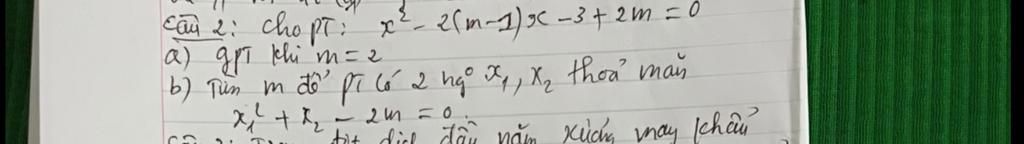 Câu 2: Cho pt: x² - 2(m-1)x - 3 + 2m = 0
a) gpt khi m = 2
b) Tìm m để pt có 2 ng⁰ x₁, x₂ thoả mãn
x₁² + x₂ - 2m = 0.
may khẩu